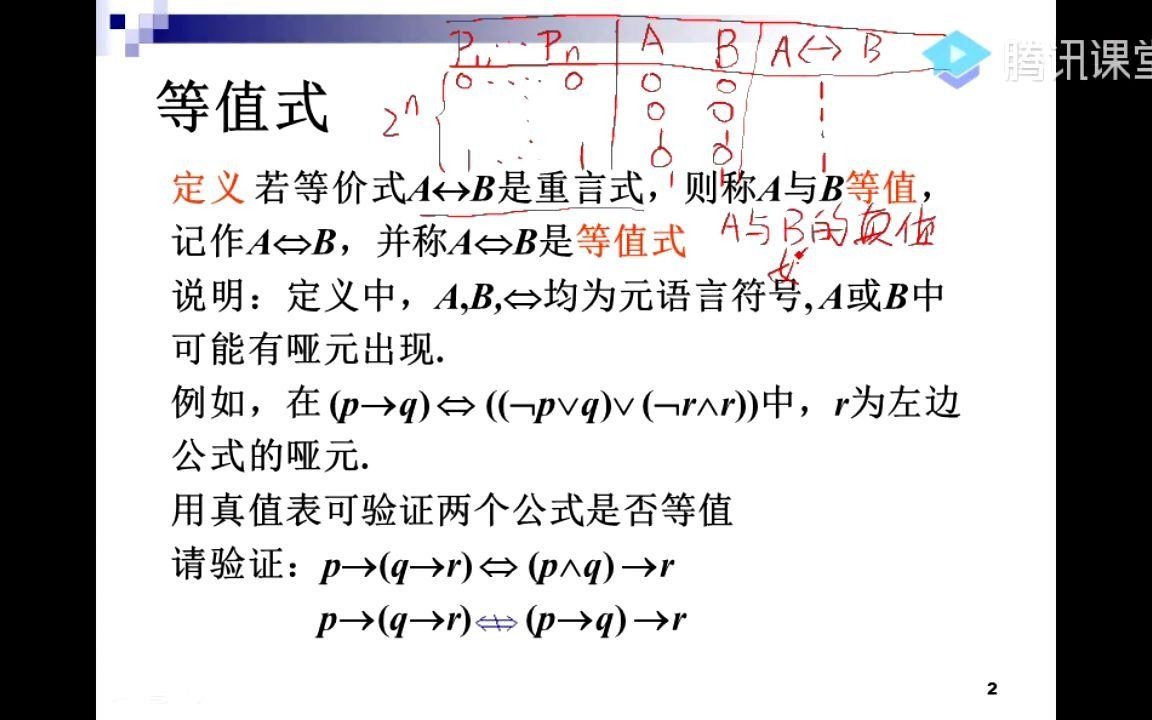 P₁, ⋯ Pₙ A B A↔B
腾讯课堂
0 ⋯ 0 0 0 1
等值式
2ⁿ
0 0 1
1 ⋯ 1 0 0 1
定义 若等价式A↔B是重言式，则称A与B等值，
记作A⇔B，并称A⇔B是等值式
A与B的真值
说明：定义中，A,B,⇔均为元语言符号, A或B中
可能有哑元出现.
例如，在 (p→q) ⇔ ((¬p∨q)∨ (¬r∧r))中，r为左边
公式的哑元.
用真值表可验证两个公式是否等值
请验证：p→(q→r) ⇔ (p∧q) →r
p→(q→r) ⇎ (p→q) →r
2